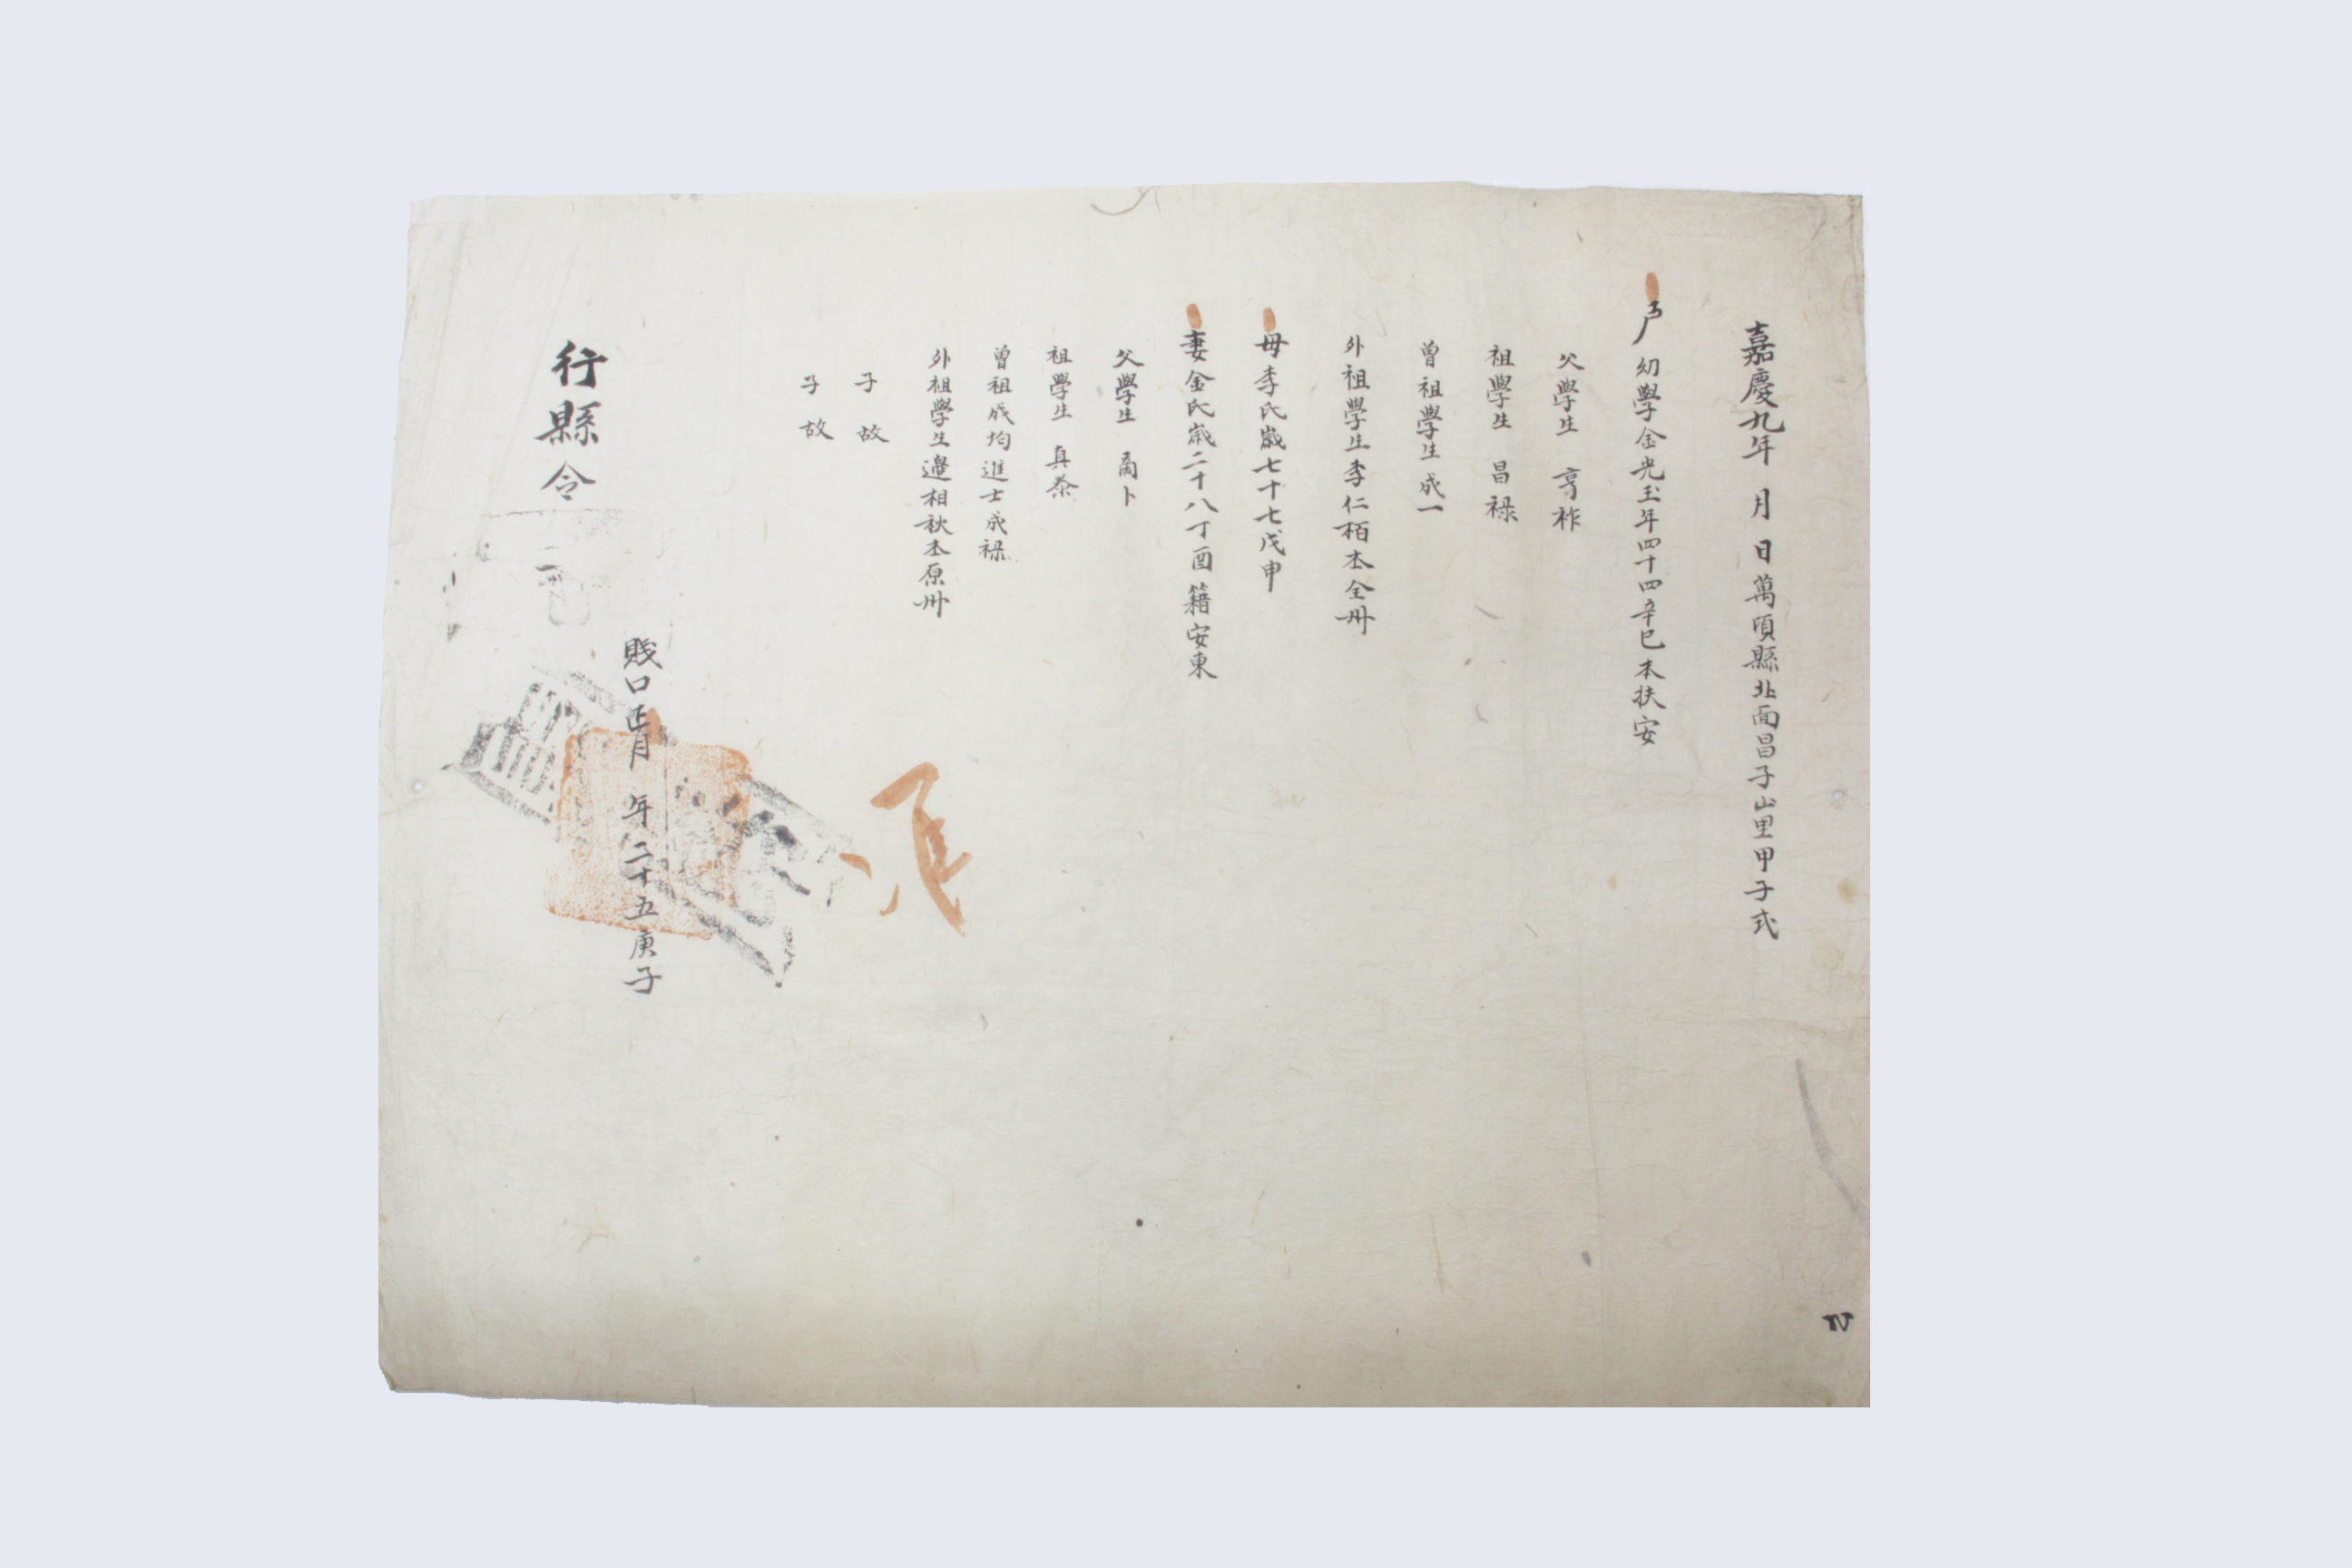 嘉慶九年 月 日萬頃縣北面昌子山里甲子式
戶 幼學金光玉年四十四辛巳本扶安
父學生 亨祚
祖學生 昌祿
曾祖學生成一
外祖學生李仁栢本全州
母李氏歲七十七戊申
妻金氏歲二十八丁酉籍安東
父學生 卜
祖學生 真泰
曾祖成均進士成祿
外祖學生邊相秋本原州
子 故
子 故
賤口 年二十五庚子
行縣令